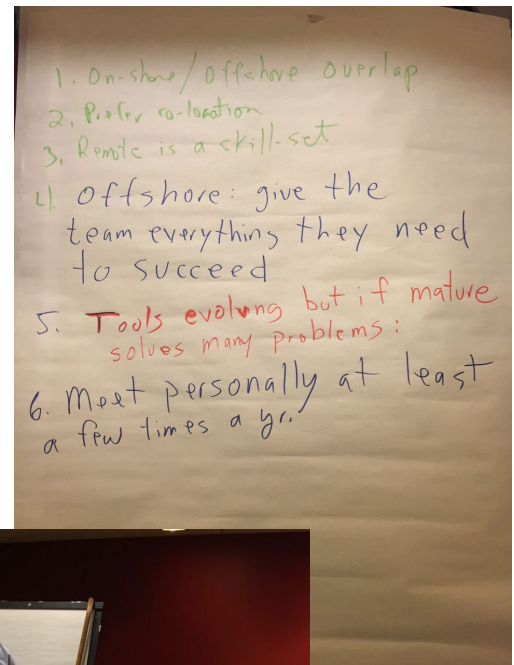 1. On-shore/offshore overlap
2. Prefer co-location
3. Remote is a skill-set
4) Offshore: give the
team everything they need
to succeed
5. Tools evolving but if mature
solves many problems:
6. Meet personally at least
a few times a yr.